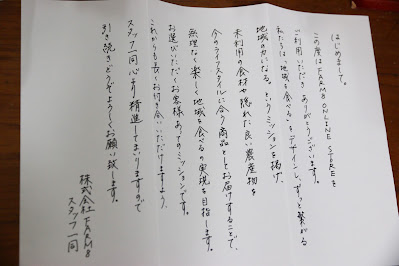 はじめまして。
この度はFARM8 ONLINE STOREを
ご利用いただき ありがとうございます。
私たちは「地域を食べる」をデザインし、ずっと繋がる
地域の力になる。というミッションを掲げ、
未利用の食材や隠れた良い農産物を
今のライフスタイルに合う商品としてお届けすることで、
無理なく楽しく地域を食べるの実現を目指します。
お選びいただくお客様あってのミッションです。
これからも長くお付き合いいただけますよう、
スタッフ一同心より精進してまいりますので
引き続きどうぞよろしくお願い致します。
株式会社FARM8
スタッフ一同